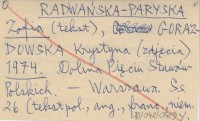 RADWAŃSKA-PARYSKA
Zofia (tekst), GORAZ-
DOWSKA Krystyna (zdjęcia)
1974 Dolina Pięciu Stawów
Polskich. — Warszawa. Ss
26 (tekst pol., ang., franc., niem.